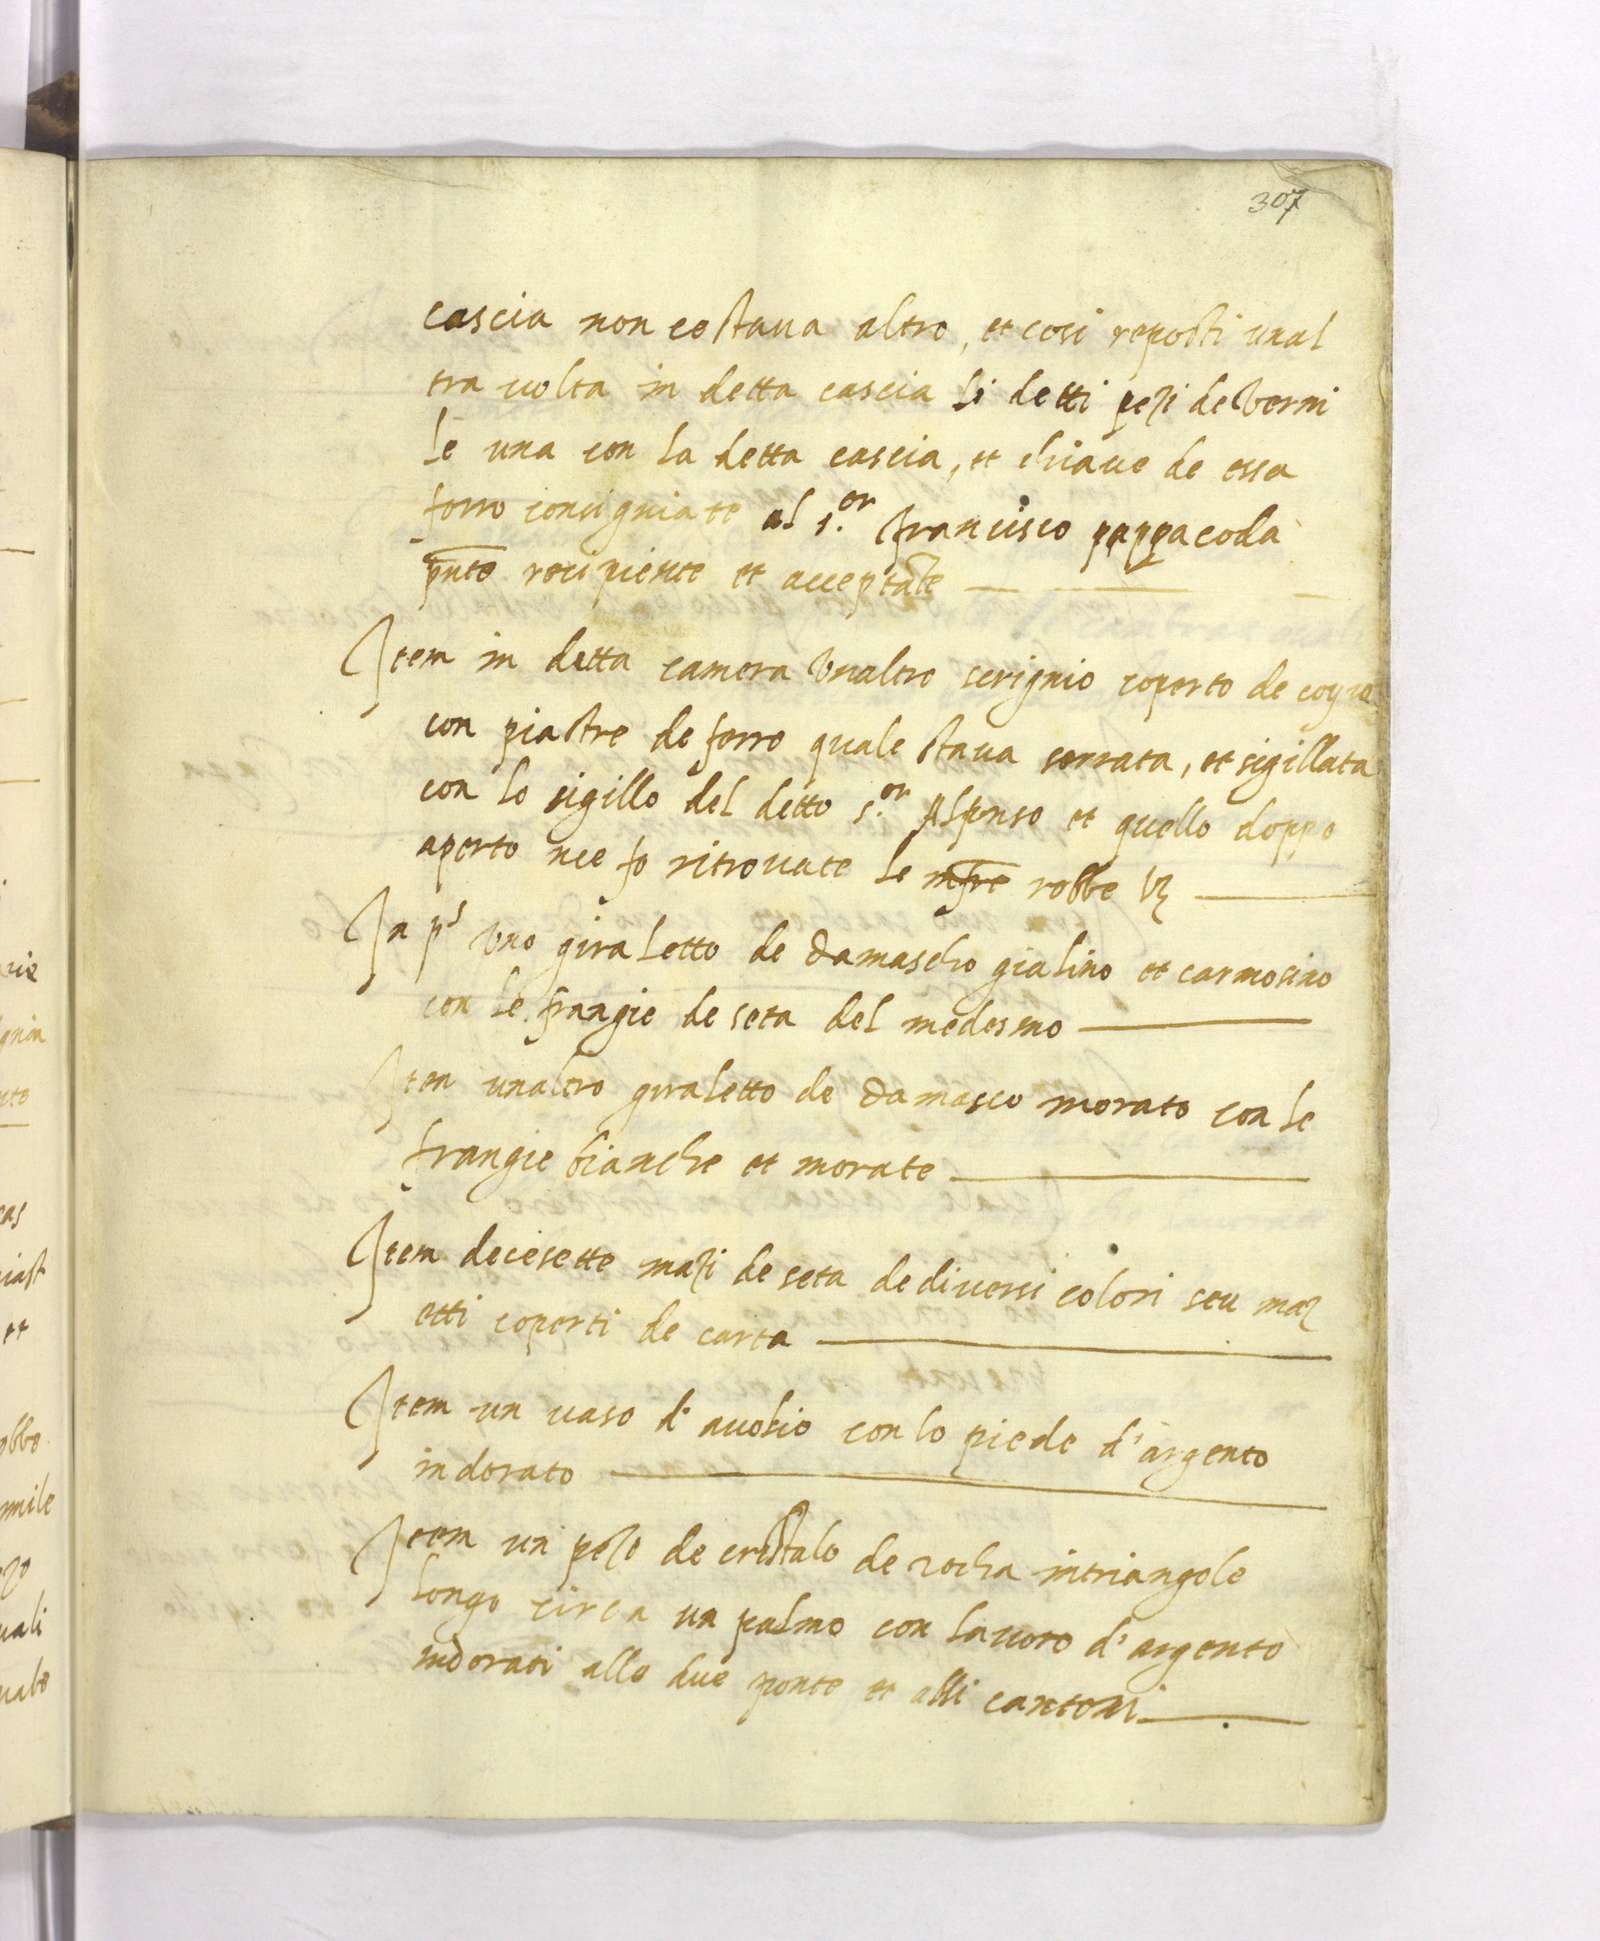 307
cascia non costaua altro, et cosi reposti unal
tra uolta in detta cascia li detti pezi de vermi
le una con la detta cascia, et chiaue de essa
forro consigniate al s.or francisco pappacoda
pnte recipiente et acceptate
Item in detta camera vnaltro scrignio coperto de coyro
con piastre de ferro quale staua serrata, et sigillata
con lo sigillo del detto s.or Alfonso et quello doppo
aperto nce fo ritrouate le infre robbe vz
In ps vno giraletto de damascho gialino et carmosino
con le frangie de seta del medesmo
Item unaltro giraletto de damasco morato con le
frangie bianche et morate
Item decesette mazi de seta de diuersi colori seu maz
etti coperti de carta
Item un uaso d' auolio con lo piede d'argento
indorato
Item un pezo de cristalo de rocha intriangole
longo circa un palmo con lauoro d'argento
indorati alle due ponte et alli cantoni